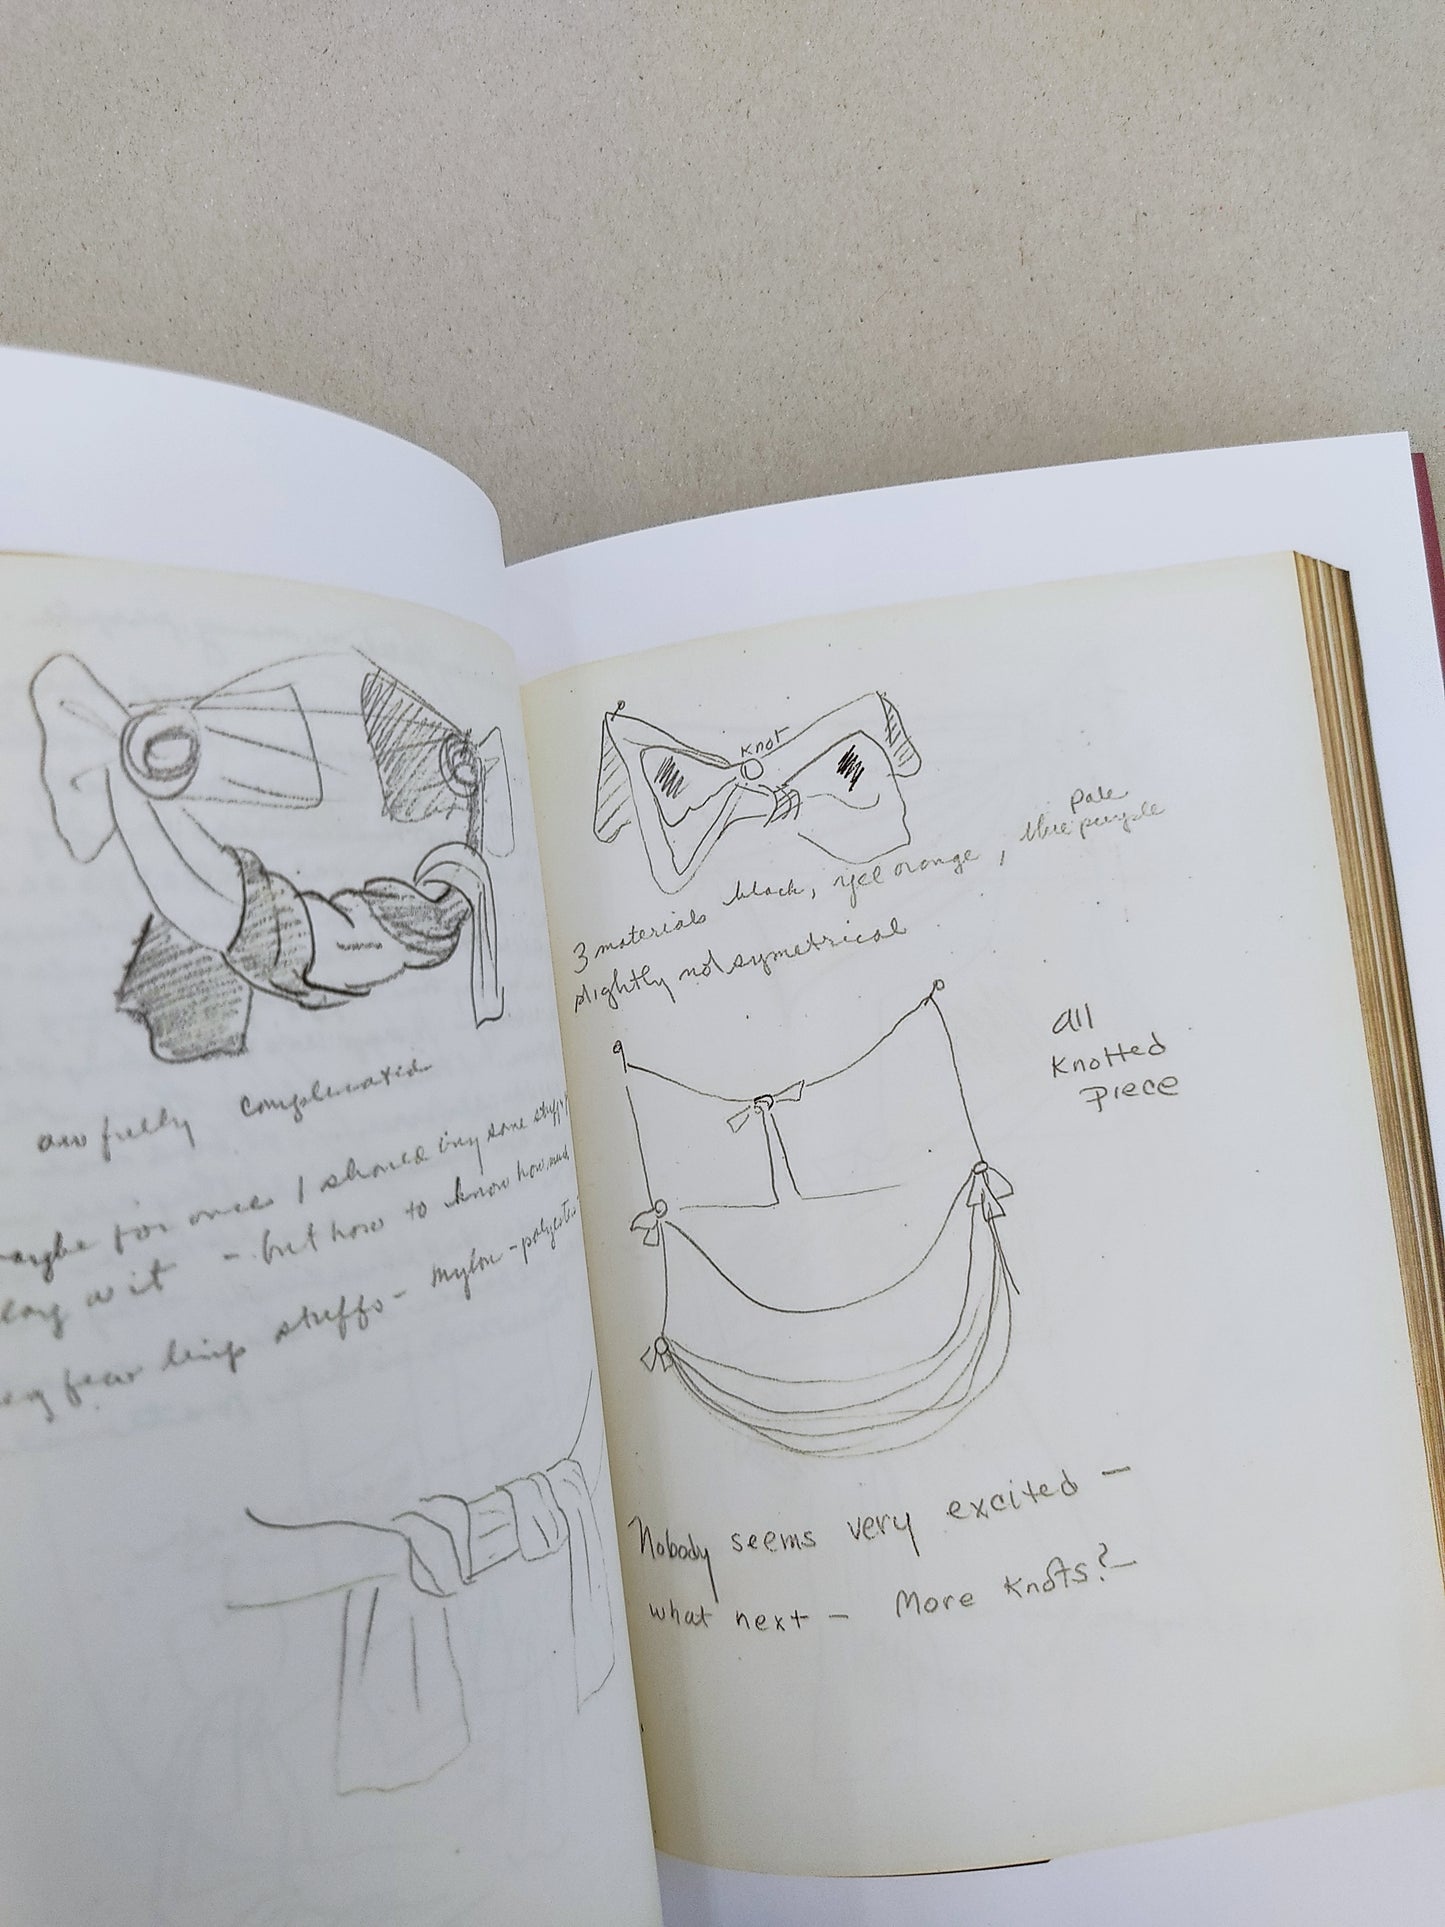 awfully complicated
maybe for once I should buy some stuff
long as it - but how to know how much
fear limp stuffs - nylon - polyester
Knot
3 materials black, yel orange, pale
blue purple
slightly not symetrical
all
Knotted
Piece
Nobody seems very excited —
what next — More Knots? —